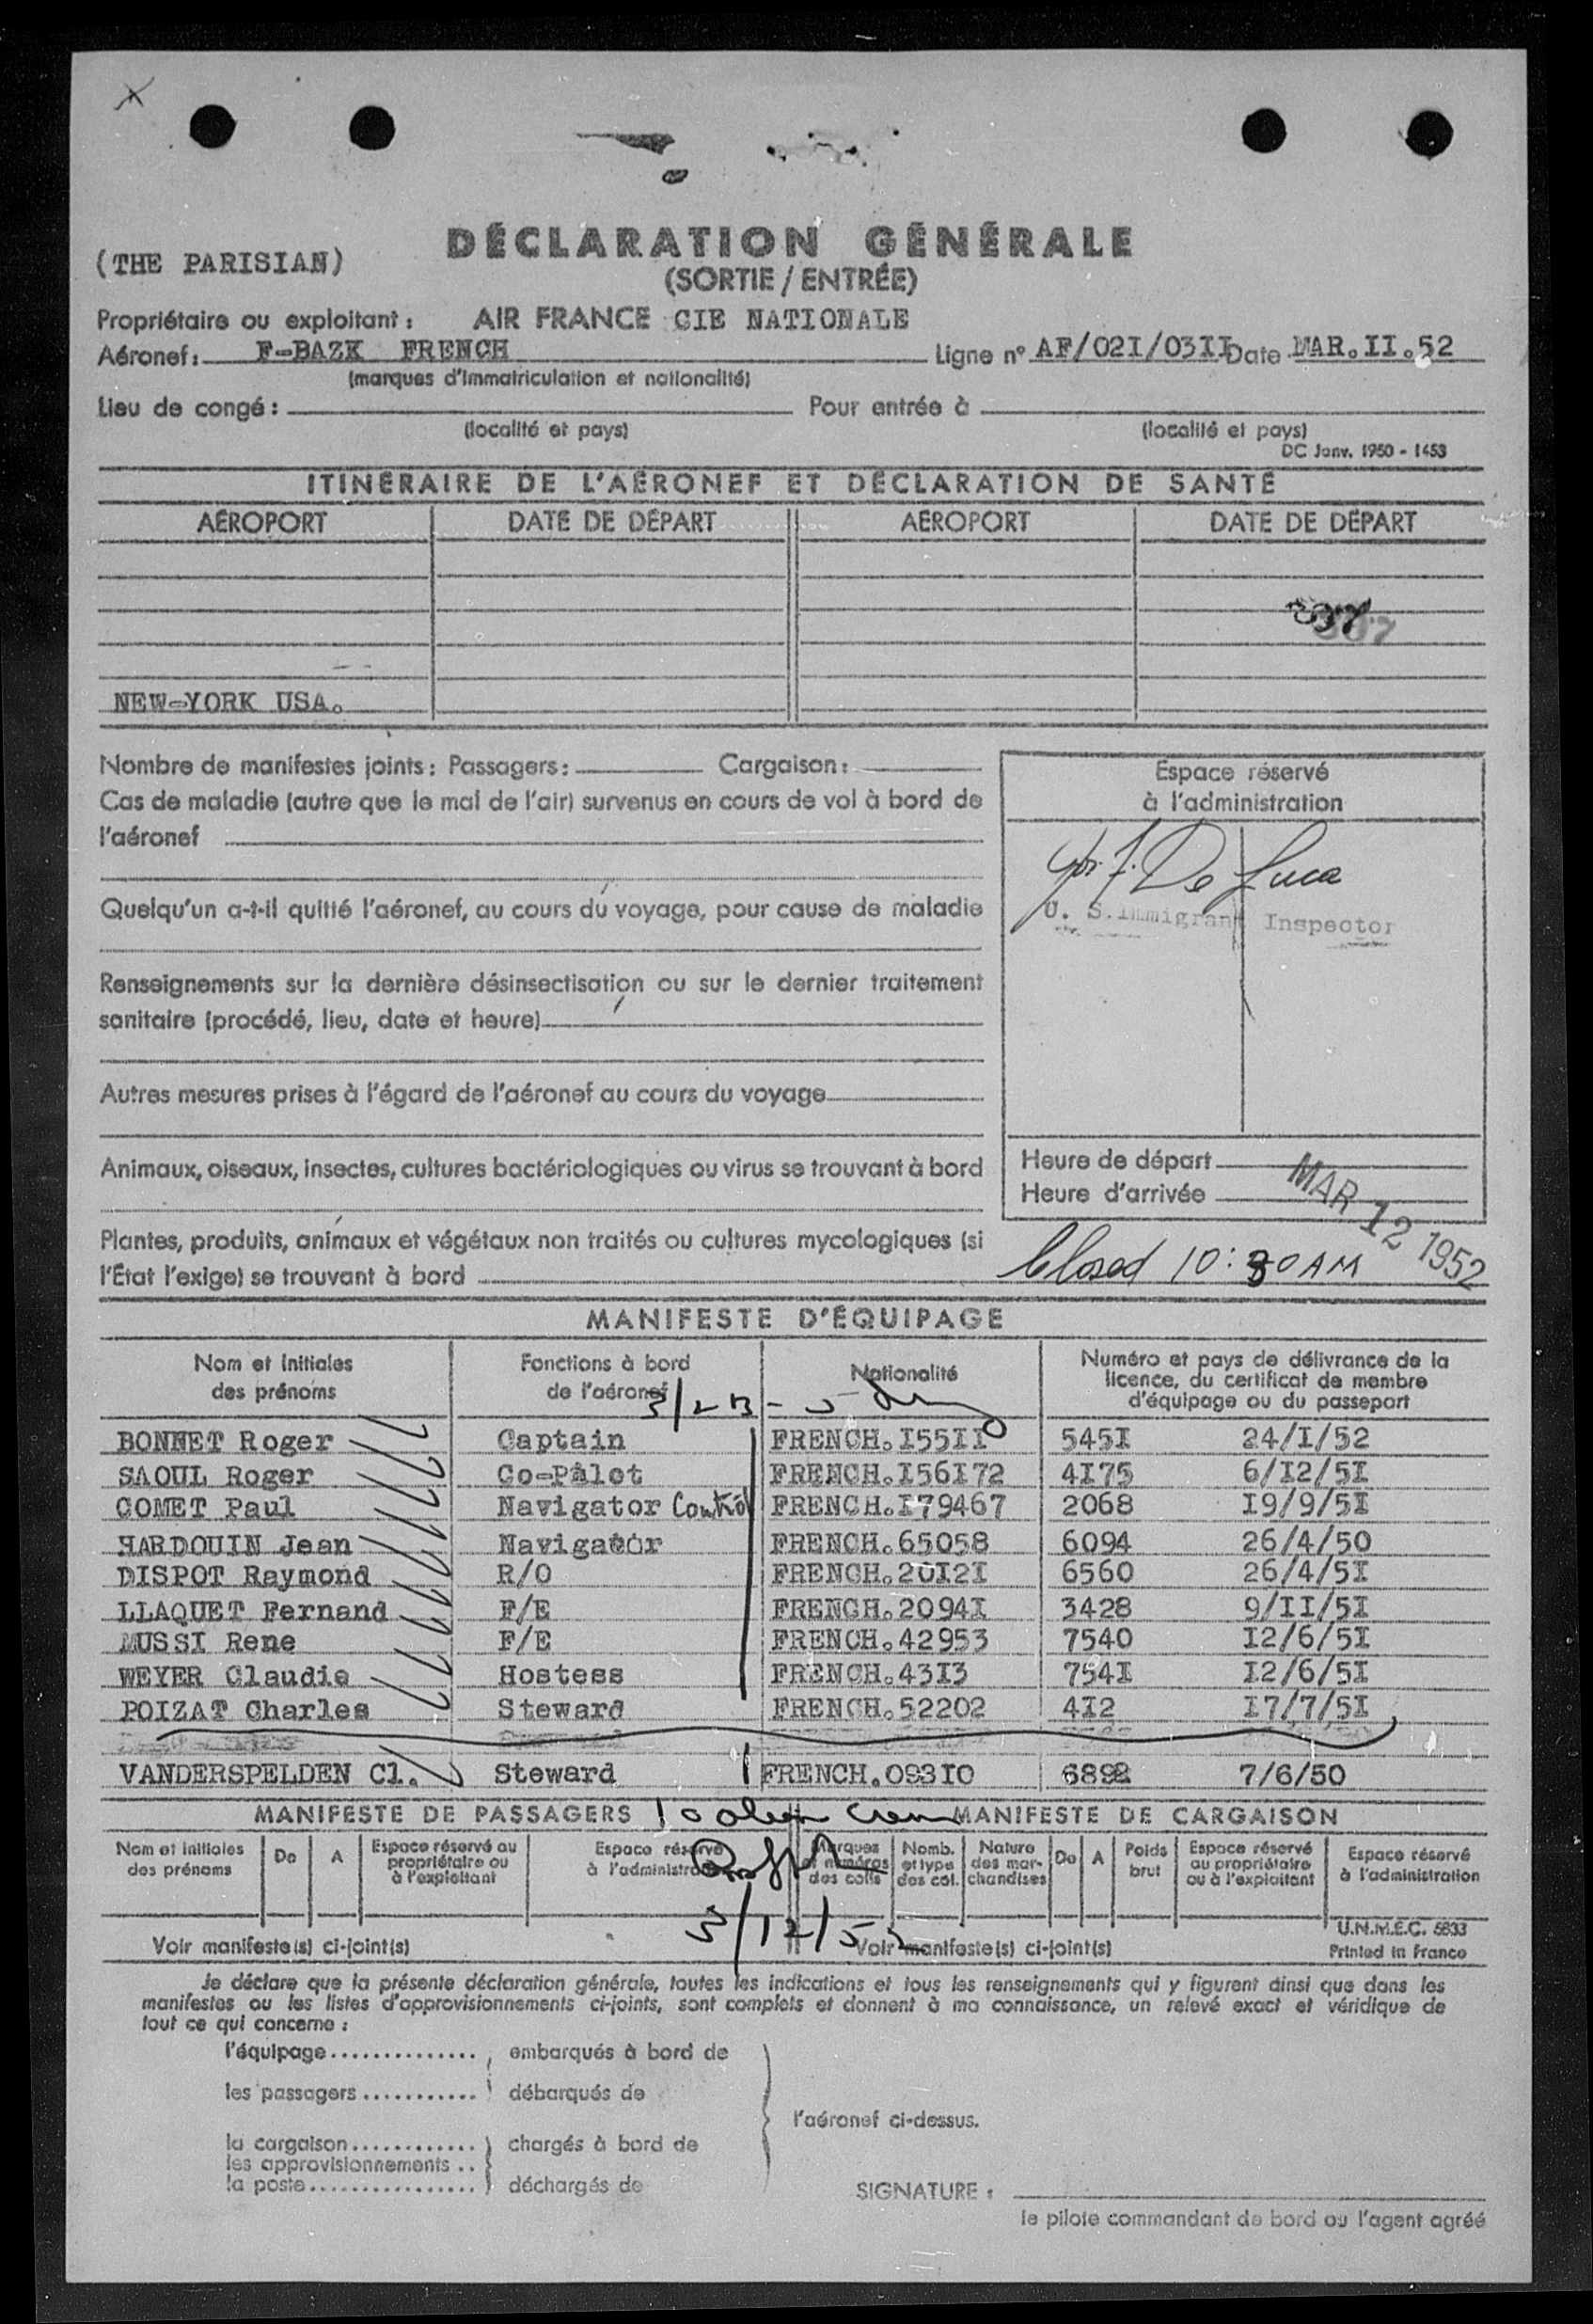 DÉCLARATION GÉNÉRALE
(THE PARISIAN)
(SORTIE / ENTRÉE)
Propriétaire ou exploitant : AIR FRANCE CIE NATIONALE
Aéronef : F-BAZK FRENCH Ligne n° AF/02I/03II Date MAR.II.52
(marques d'immatriculation et nationalité)
Lieu de congé : Pour entrée à
(localité et pays) (localité et pays)
DC Janv. 1950 - 1453
ITINÉRAIRE DE L'AÉRONEF ET DÉCLARATION DE SANTÉ
AÉROPORT DATE DE DÉPART AÉROPORT DATE DE DÉPART
NEW-YORK USA.
Nombre de manifestes joints : Passagers : Cargaison :
Cas de maladie (autre que le mal de l'air) survenus en cours de vol à bord de
l'aéronef
Quelqu'un a-t-il quitté l'aéronef, au cours du voyage, pour cause de maladie
Renseignements sur la dernière désinsectisation ou sur le dernier traitement
sanitaire (procédé, lieu, date et heure)
Autres mesures prises à l'égard de l'aéronef au cours du voyage
Animaux, oiseaux, insectes, cultures bactériologiques ou virus se trouvant à bord
Plantes, produits, animaux et végétaux non traités ou cultures mycologiques (si
l'État l'exige) se trouvant à bord
Espace réservé
à l'administration
De Luca
U. S. Immigrant Inspector
Heure de départ
Heure d'arrivée
MAR 12 1952
Closed 10:30 AM
MANIFESTE D'ÉQUIPAGE
Nom et initiales Fonctions à bord Nationalité Numéro et pays de délivrance de la
des prénoms de l'aéronef licence, du certificat de membre
d'équipage ou du passeport
BONNET Roger Captain FRENCH.I55II 545I 24/I/52
SAOUL Roger Co-Pilot FRENCH.I56I72 4I75 6/I2/5I
COMET Paul Navigator Control FRENCH.I79467 2068 I9/9/5I
HARDOUIN Jean Navigator FRENCH.65058 6094 26/4/50
DISPOT Raymond R/O FRENCH.20I2I 6560 26/4/5I
LLAQUET Fernand F/E FRENCH.2094I 3428 9/II/5I
MUSSI Rene F/E FRENCH.42953 7540 I2/6/5I
WEYER Claudie Hostess FRENCH.43I3 754I I2/6/5I
POIZAT Charles Steward FRENCH.52202 4I2 I7/7/5I
VANDERSPELDEN Cl. Steward FRENCH.093I0 6892 7/6/50
MANIFESTE DE PASSAGERS 10 alien crew MANIFESTE DE CARGAISON
Nom et initiales De A Espace réservé au Espace réservé Marques Nomb. Nature De A Poids Espace réservé Espace réservé
des prénoms propriétaire ou à l'administration et numéros et type des mar- brut au propriétaire à l'administration
à l'exploitant des colis des col. chandises ou à l'exploitant
3/12/52
U.N.M.E.C. 5833
Voir manifeste(s) ci-joint(s) Voir manifeste(s) ci-joint(s) Printed in France
Je déclare que la présente déclaration générale, toutes les indications et tous les renseignements qui y figurent ainsi que dans les
manifestes ou les listes d'approvisionnements ci-joints, sont complets et donnent à ma connaissance, un relevé exact et véridique de
tout ce qui concerne :
l'équipage.............. embarqués à bord de
les passagers........... débarqués de
l'aéronef ci-dessus.
la cargaison............ chargés à bord de
les approvisionnements ..
la poste................ déchargés de
SIGNATURE :
le pilote commandant de bord ou l'agent agréé